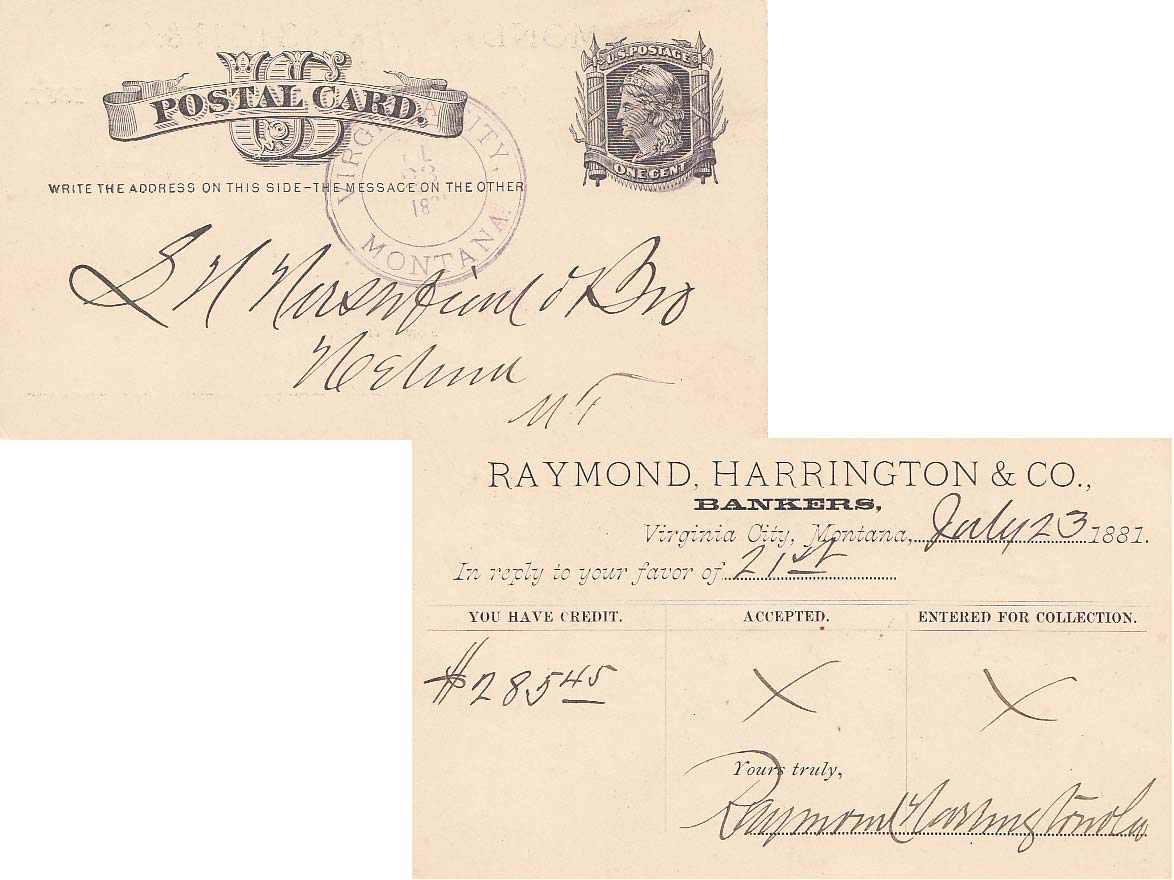 US
POSTAL CARD.
U.S. POSTAGE
ONE CENT
WRITE THE ADDRESS ON THIS SIDE–THE MESSAGE ON THE OTHER
VIRGINIA CITY,
23
MONTANA.
L H Hershfield & Bro
Helena
MT
RAYMOND, HARRINGTON & CO.,
BANKERS,
Virginia City, Montana, July 23 1881.
In reply to your favor of 21st
YOU HAVE CREDIT. ACCEPTED. ENTERED FOR COLLECTION.
$285 45 X X
Yours truly,
Raymond Harrington & Co